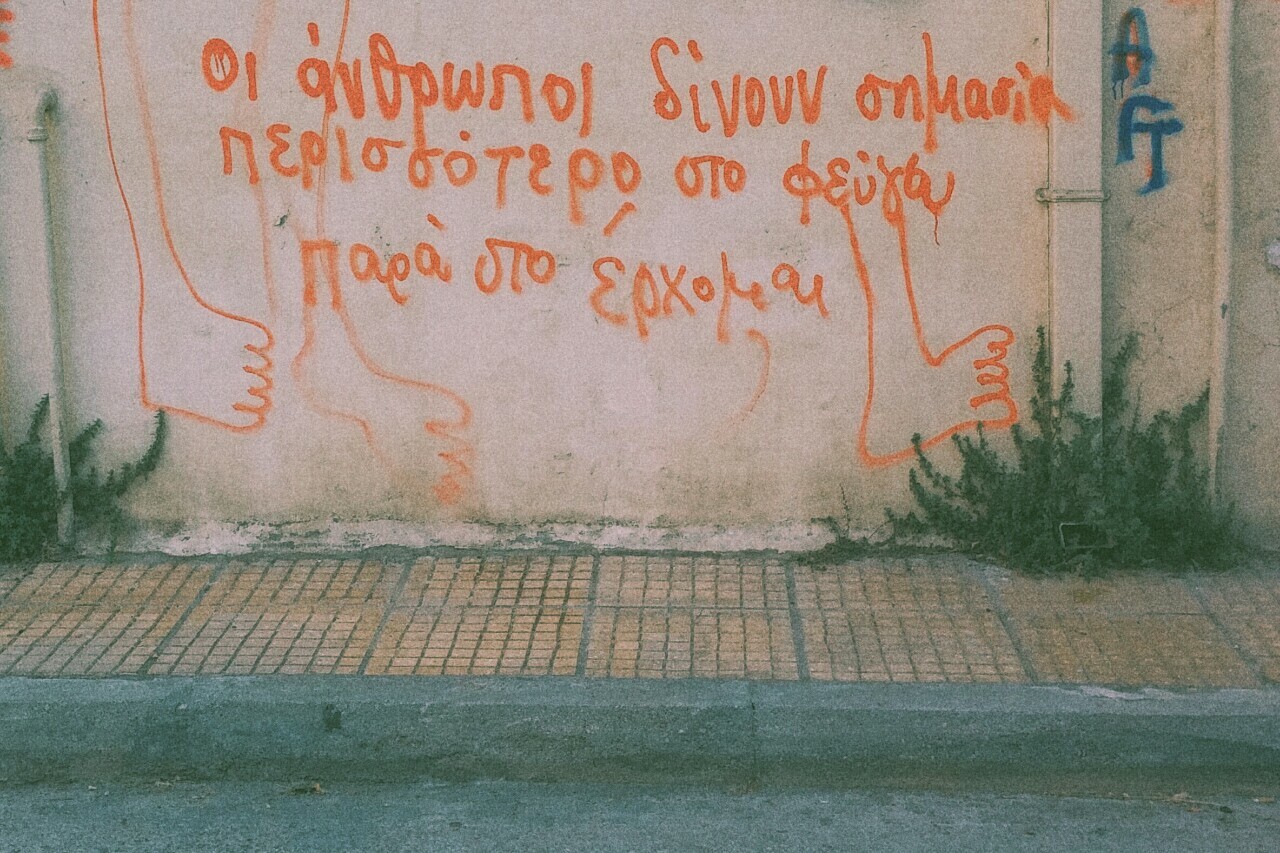 Οι άνθρωποι δίνουν σημασία
περισσότερο στο φεύγω
παρά στο έρχομαι